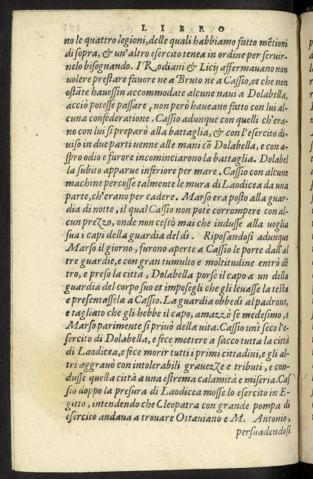 LIBRO
no le quattro legioni, delle quali habbiamo fatto mẽtioni
di sopra, & un'altro esercito tenea in ordine per seruir-
nelo bisognando. I Rodiani & Licij affermauano non
uolere prestare fauore ne a Bruto ne a Cassio, et che non
ostãte hauessin accommodate alcune naui a Dolabella,
acciò potesse passare, non però haueano fatto con lui al-
cuna confideratione. Cassio adunque con quelli ch'era-
no con lui si preparò alla battaglia, & con l'esercito di-
uiso in due parti uenne alle mani cõ Dolabella, e con a-
spro odio e furore incominciarono la battaglia. Dolabel
la subito apparue inferiore per mare. Cassio con alcune
machine percosse talmente le mura di Laodicea da una
parte, ch'erano per cadere. Marso era posto alla guar-
dia di notte, il qual Cassio non potè corrompere con al-
cun prezzo, onde non cessò mai che indusse alla uoglia
sua i capi della guardia del dì. Riposandosi adunque
Marso il giorno, furono aperte a Cassio le porte dall'al
tre guardie, e con gran tumulto e moltitudine entrò dẽ
tro, e preso la città, Dolabella porse il capo a un della
guardia del corpo suo et imposegli che gli leuasse la testa
e presentassela a Cassio. La guardia obbedì al padron,
e tagliato che gli hebbe il capo, amazzò se medesimo, t
Marso parimente si priuò della uita. Cassio unì seco l'e-
sercito di Dolabella, e fece mettere a sacco tutta la città
di Laodicea, e fece morir tutti i primi cittadini, e gli al-
tri aggrauò con intolerabili grauezze e tributi, e con-
dusse quella città a una estrema calamità e miseria. Cas
sio doppo la presura di Laodicea mosse lo esercito in E-
gitto, intendendo che Cleopatra con grande pompa di
esercito andaua a trouare Ottauiano e M. Antonio,
persuadendosi